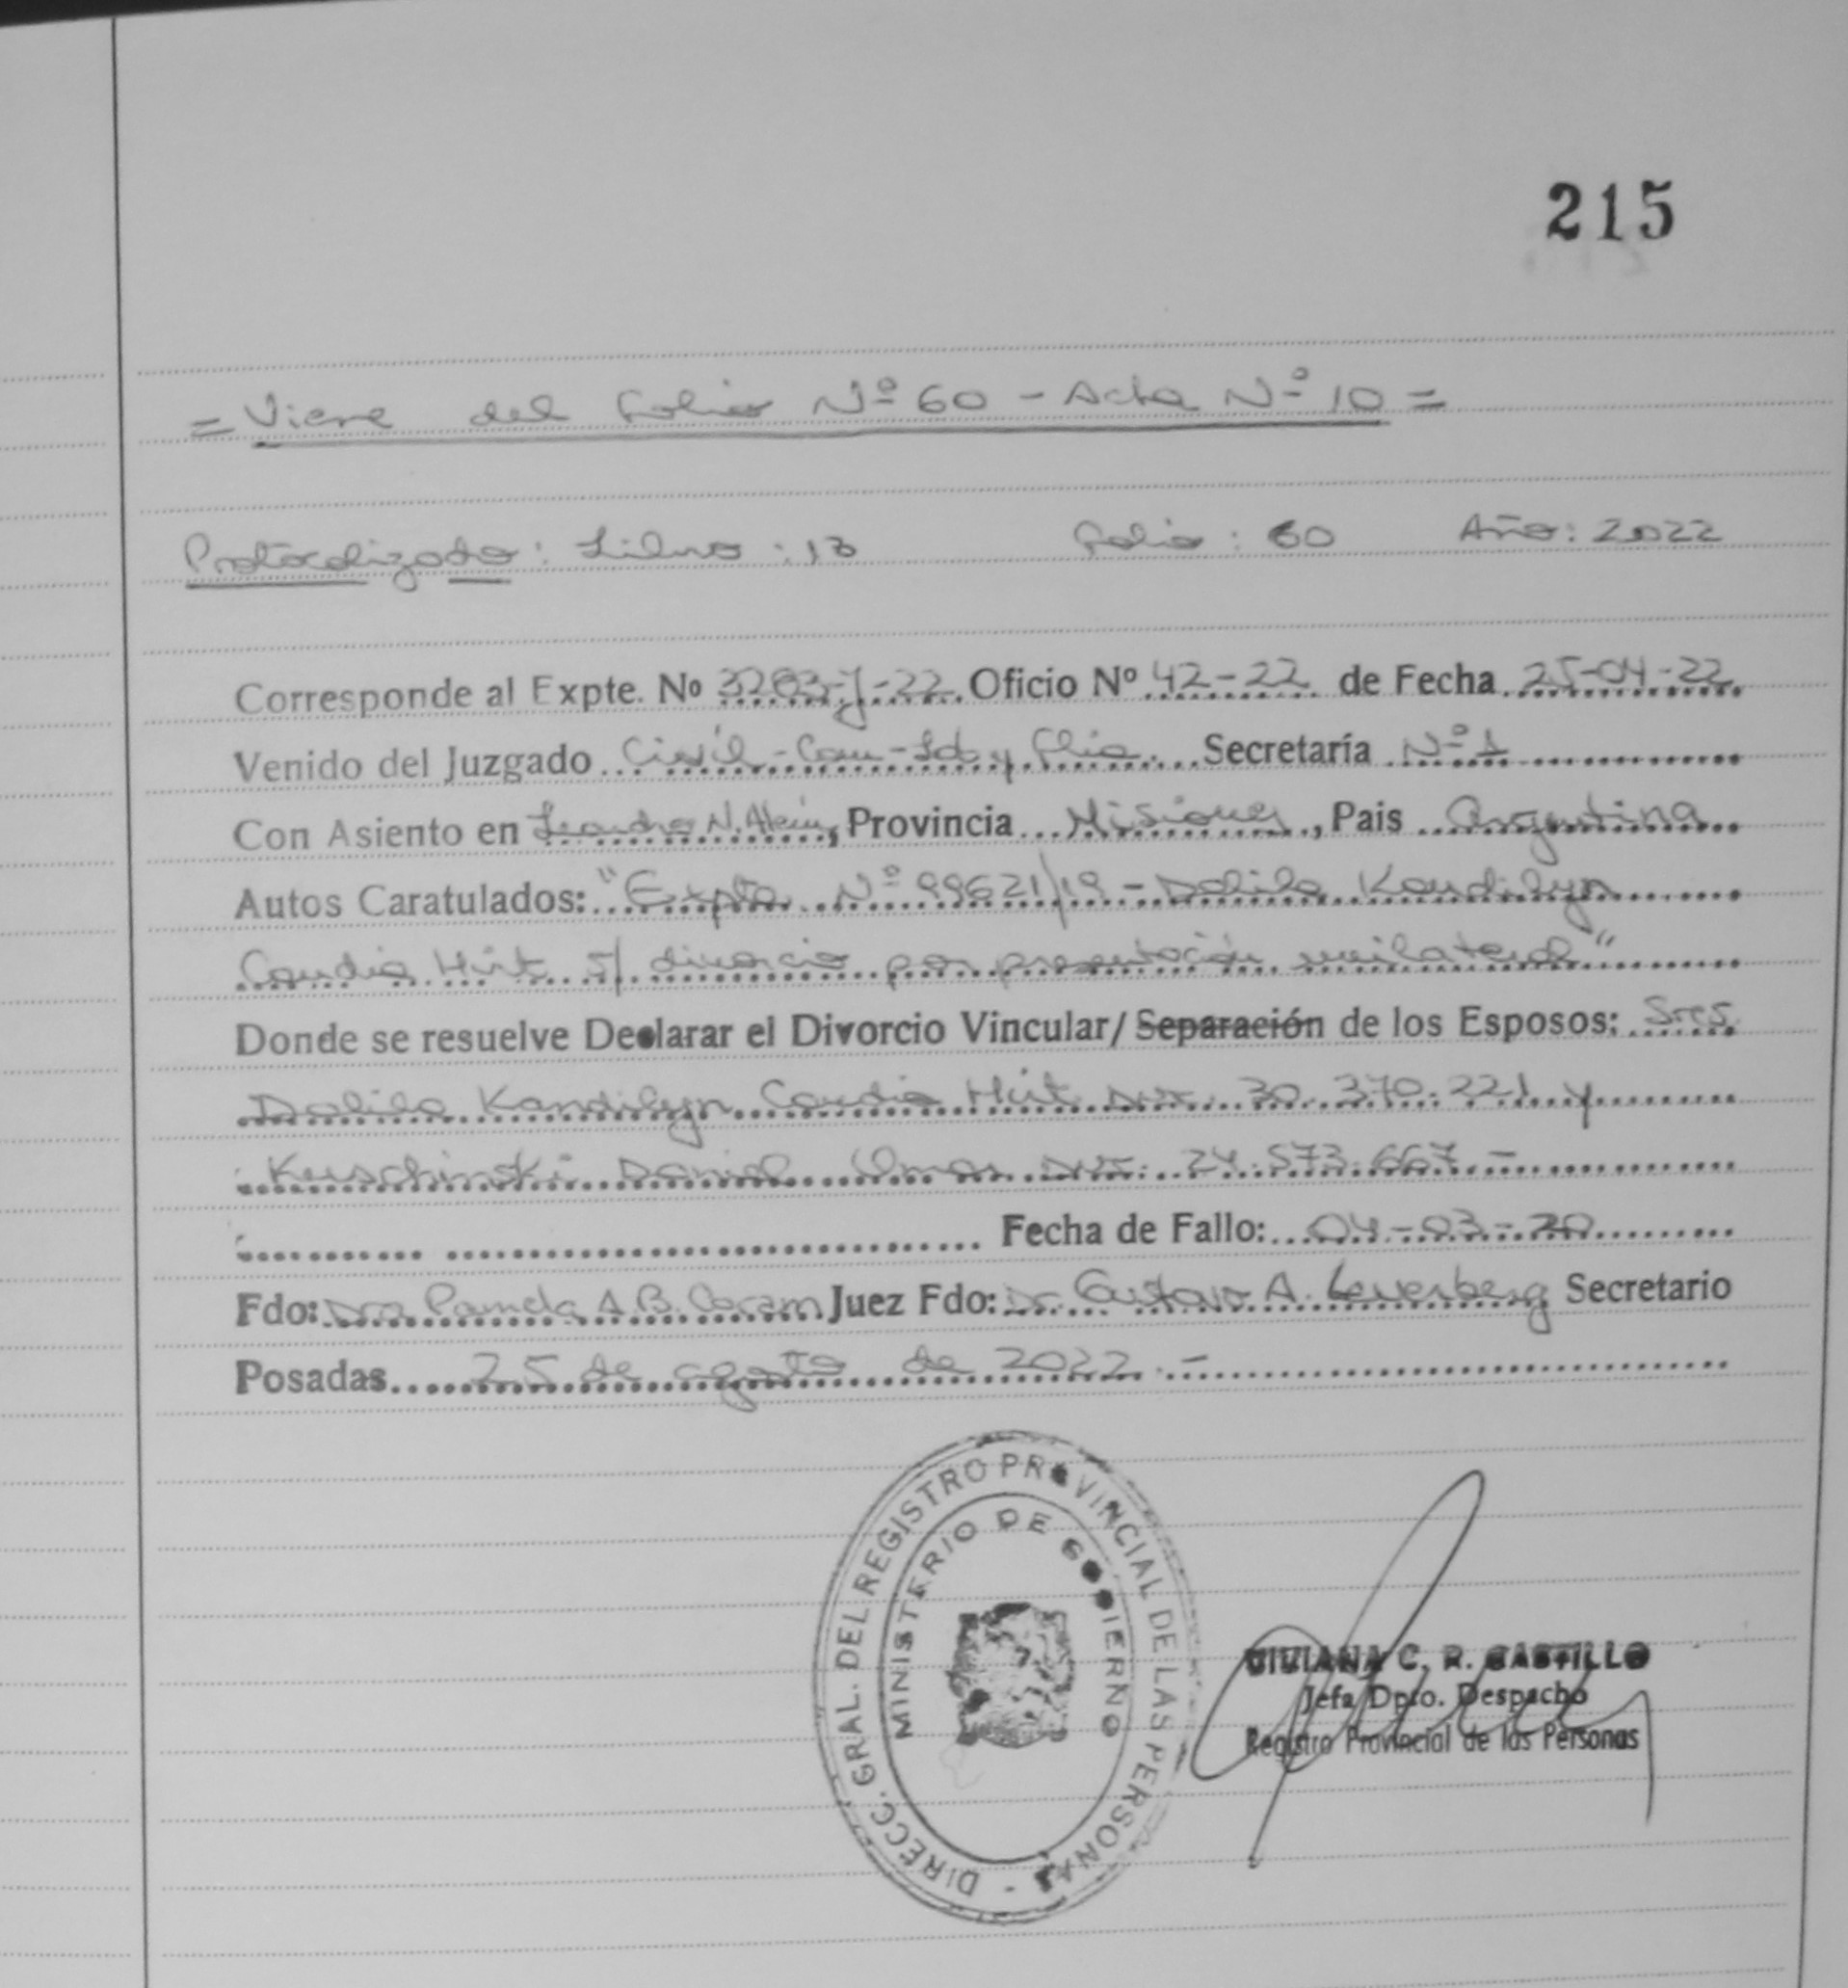 215
= Viene del Folio Nº 60 - Acta Nº 10 =
Protocolizado: Libro: 13 Folio: 60 Año: 2022
Corresponde al Expte. No 3203-J-22. Oficio Nº 42-22 de Fecha 25-04-22
Venido del Juzgado Civil - Com - Lab y Flia. Secretaría Nº 1
Con Asiento en Leandro N. Alem, Provincia Misiones, Pais Argentina
Autos Caratulados: "Expte. Nº 99621/19 - Dalila Kandilyn
Caudia Hüt s/ divorcio por presentación unilateral"
Donde se resuelve Declarar el Divorcio Vincular/ Separación de los Esposos: Sres
Dalila Kandilyn Caudia Hüt DNI. 30.370.221 y
Kuschinski Daniel Omar DNI. 24.573.667 -
Fecha de Fallo: 04-03-20
Fdo: Dra Pamela A. B. Juez Fdo: Dr Gustavo A. Leverberg Secretario
Posadas 25 de agosto de 2022.-
DIRECC. GRAL. DEL REGISTRO PROVINCIAL DE LAS PERSONAS -
MINISTERIO DE GOBIERNO
VIVIANA C. R. CASTILLO
Jefa Dpto. Despacho
Registro Provincial de las Personas